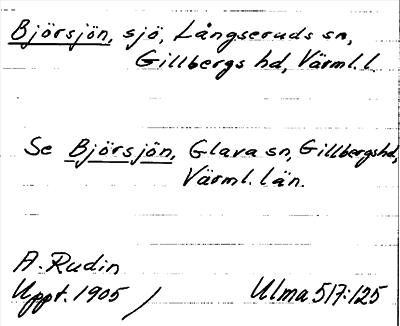 Björsjön, sjö, Långseruds sn,
Gillbergs hd, Värml. l.
Se Björsjön, Glava sn, Gillbergshd,
Värml. län.
A. Rudin
Uppt. 1905 / Ulma 517:125